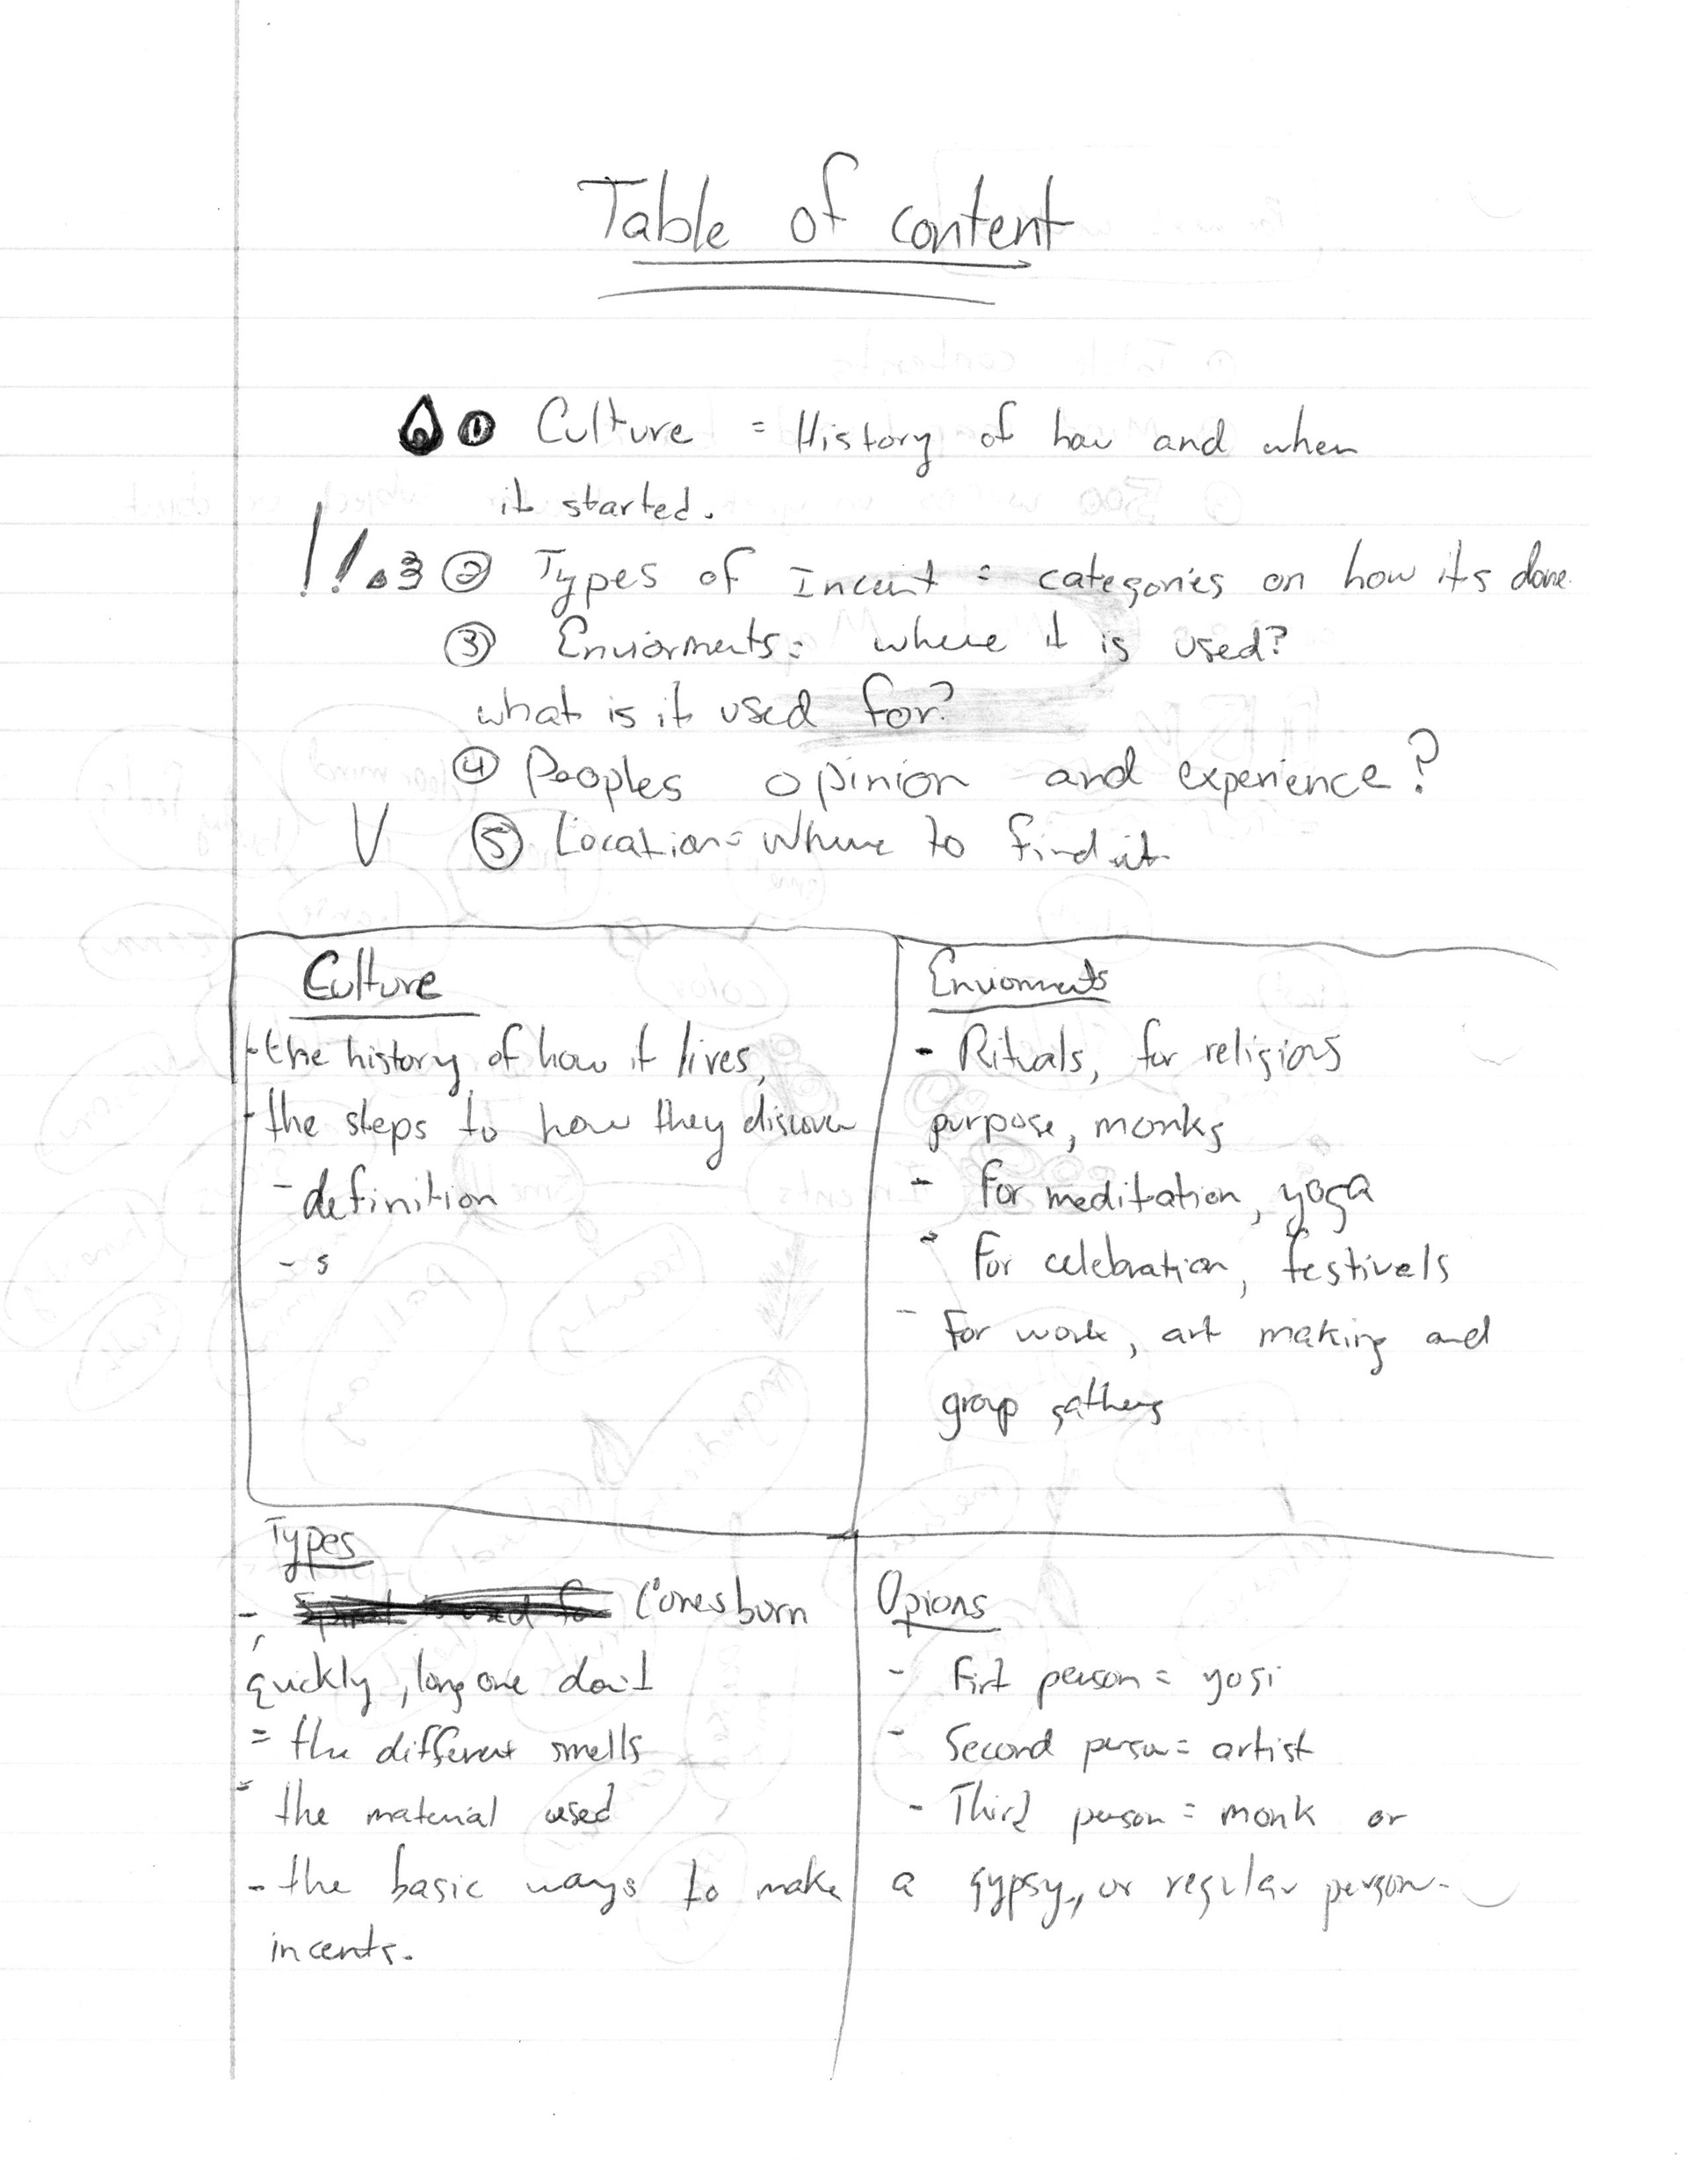 Table of content
① Culture = History of how and when
it started.
!! ② Types of Incent = categories on how its done.
③ Enviorments = where it is used?
what is it used for?
④ Peoples opinion and experience?
V ⑤ Location = Where to find it
Culture
- the history of how it lives,
- the steps to how they discover
- definition
- s
Enviorments
- Rituals, for religious
purpose, monks
- For meditation, yoga
- For celebration, festivals
- For work, art making and
group gathers
Types
- Cones burn
quickly, long one don't
= the different smells
= the material used
- the basic ways to make
incents.
Opions
- First person = yogi
- Second person = artist
- Third person = monk or
a gypsy, or regular person.